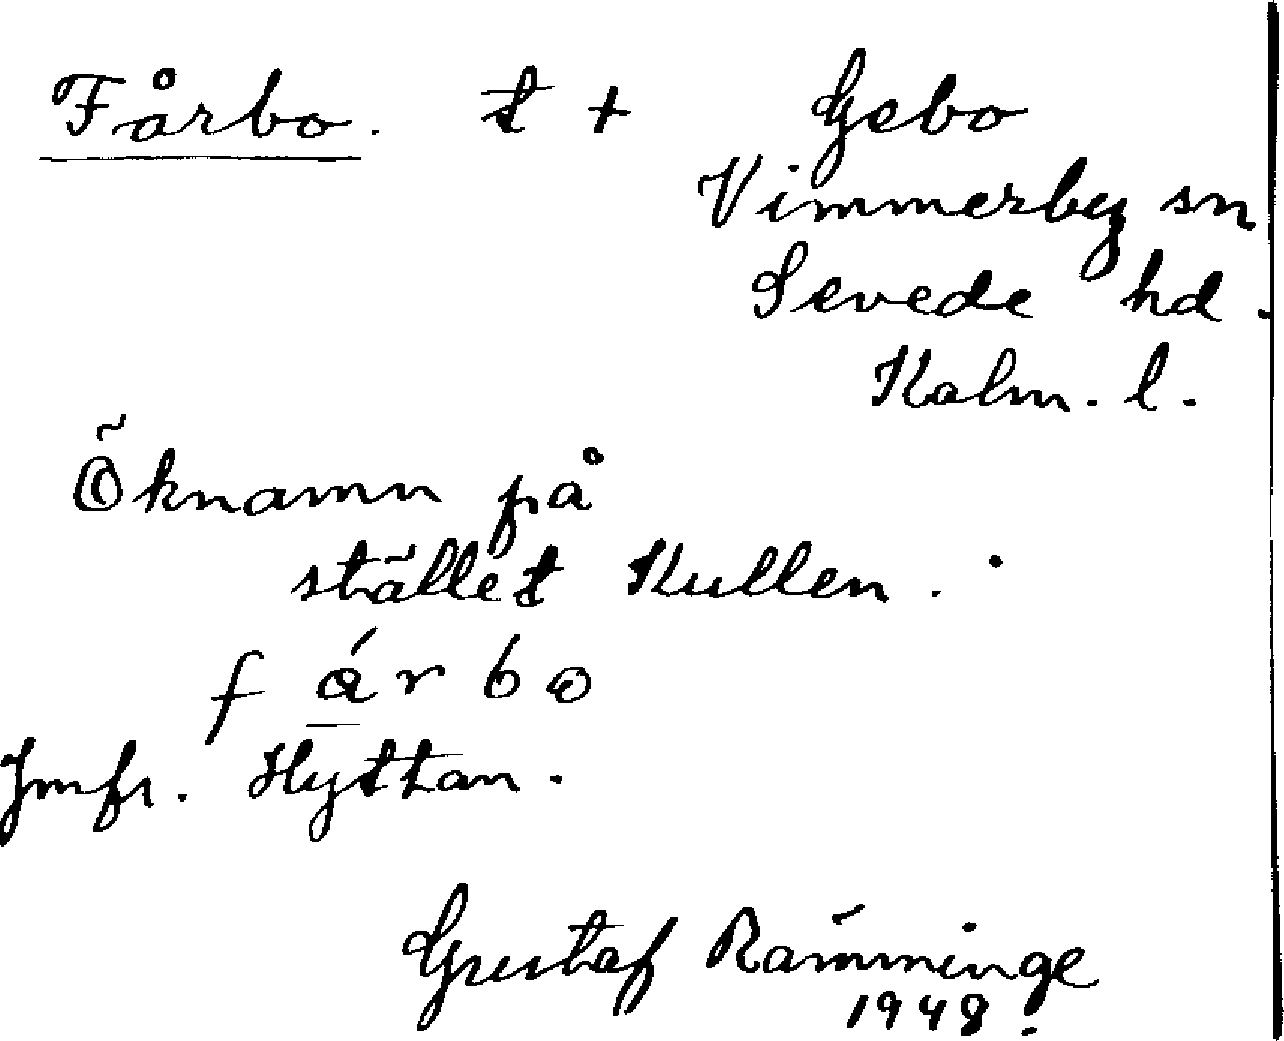 Fårbo. t + Gebo
Vimmerby sn
Sevede hd.
Kalm. l.
Öknamn på
stället Kullen.
fárbo
Jmfr. Hyttan.
Gustaf Rämminge
1948.